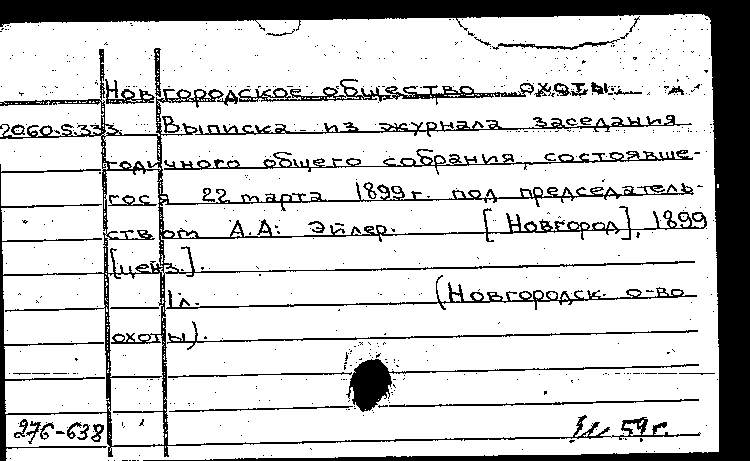 Новгородское общество охоты.
2060.S.333. Выписка из журнала заседания
годичного общего собрания, состоявше-
гося 22 марта 1899 г. под председатель-
ством А.А: Эйлер. [Новгород], 1899
[ценз.].
1 л. (Новгородск. о-во
охоты).
276-638 59 г.